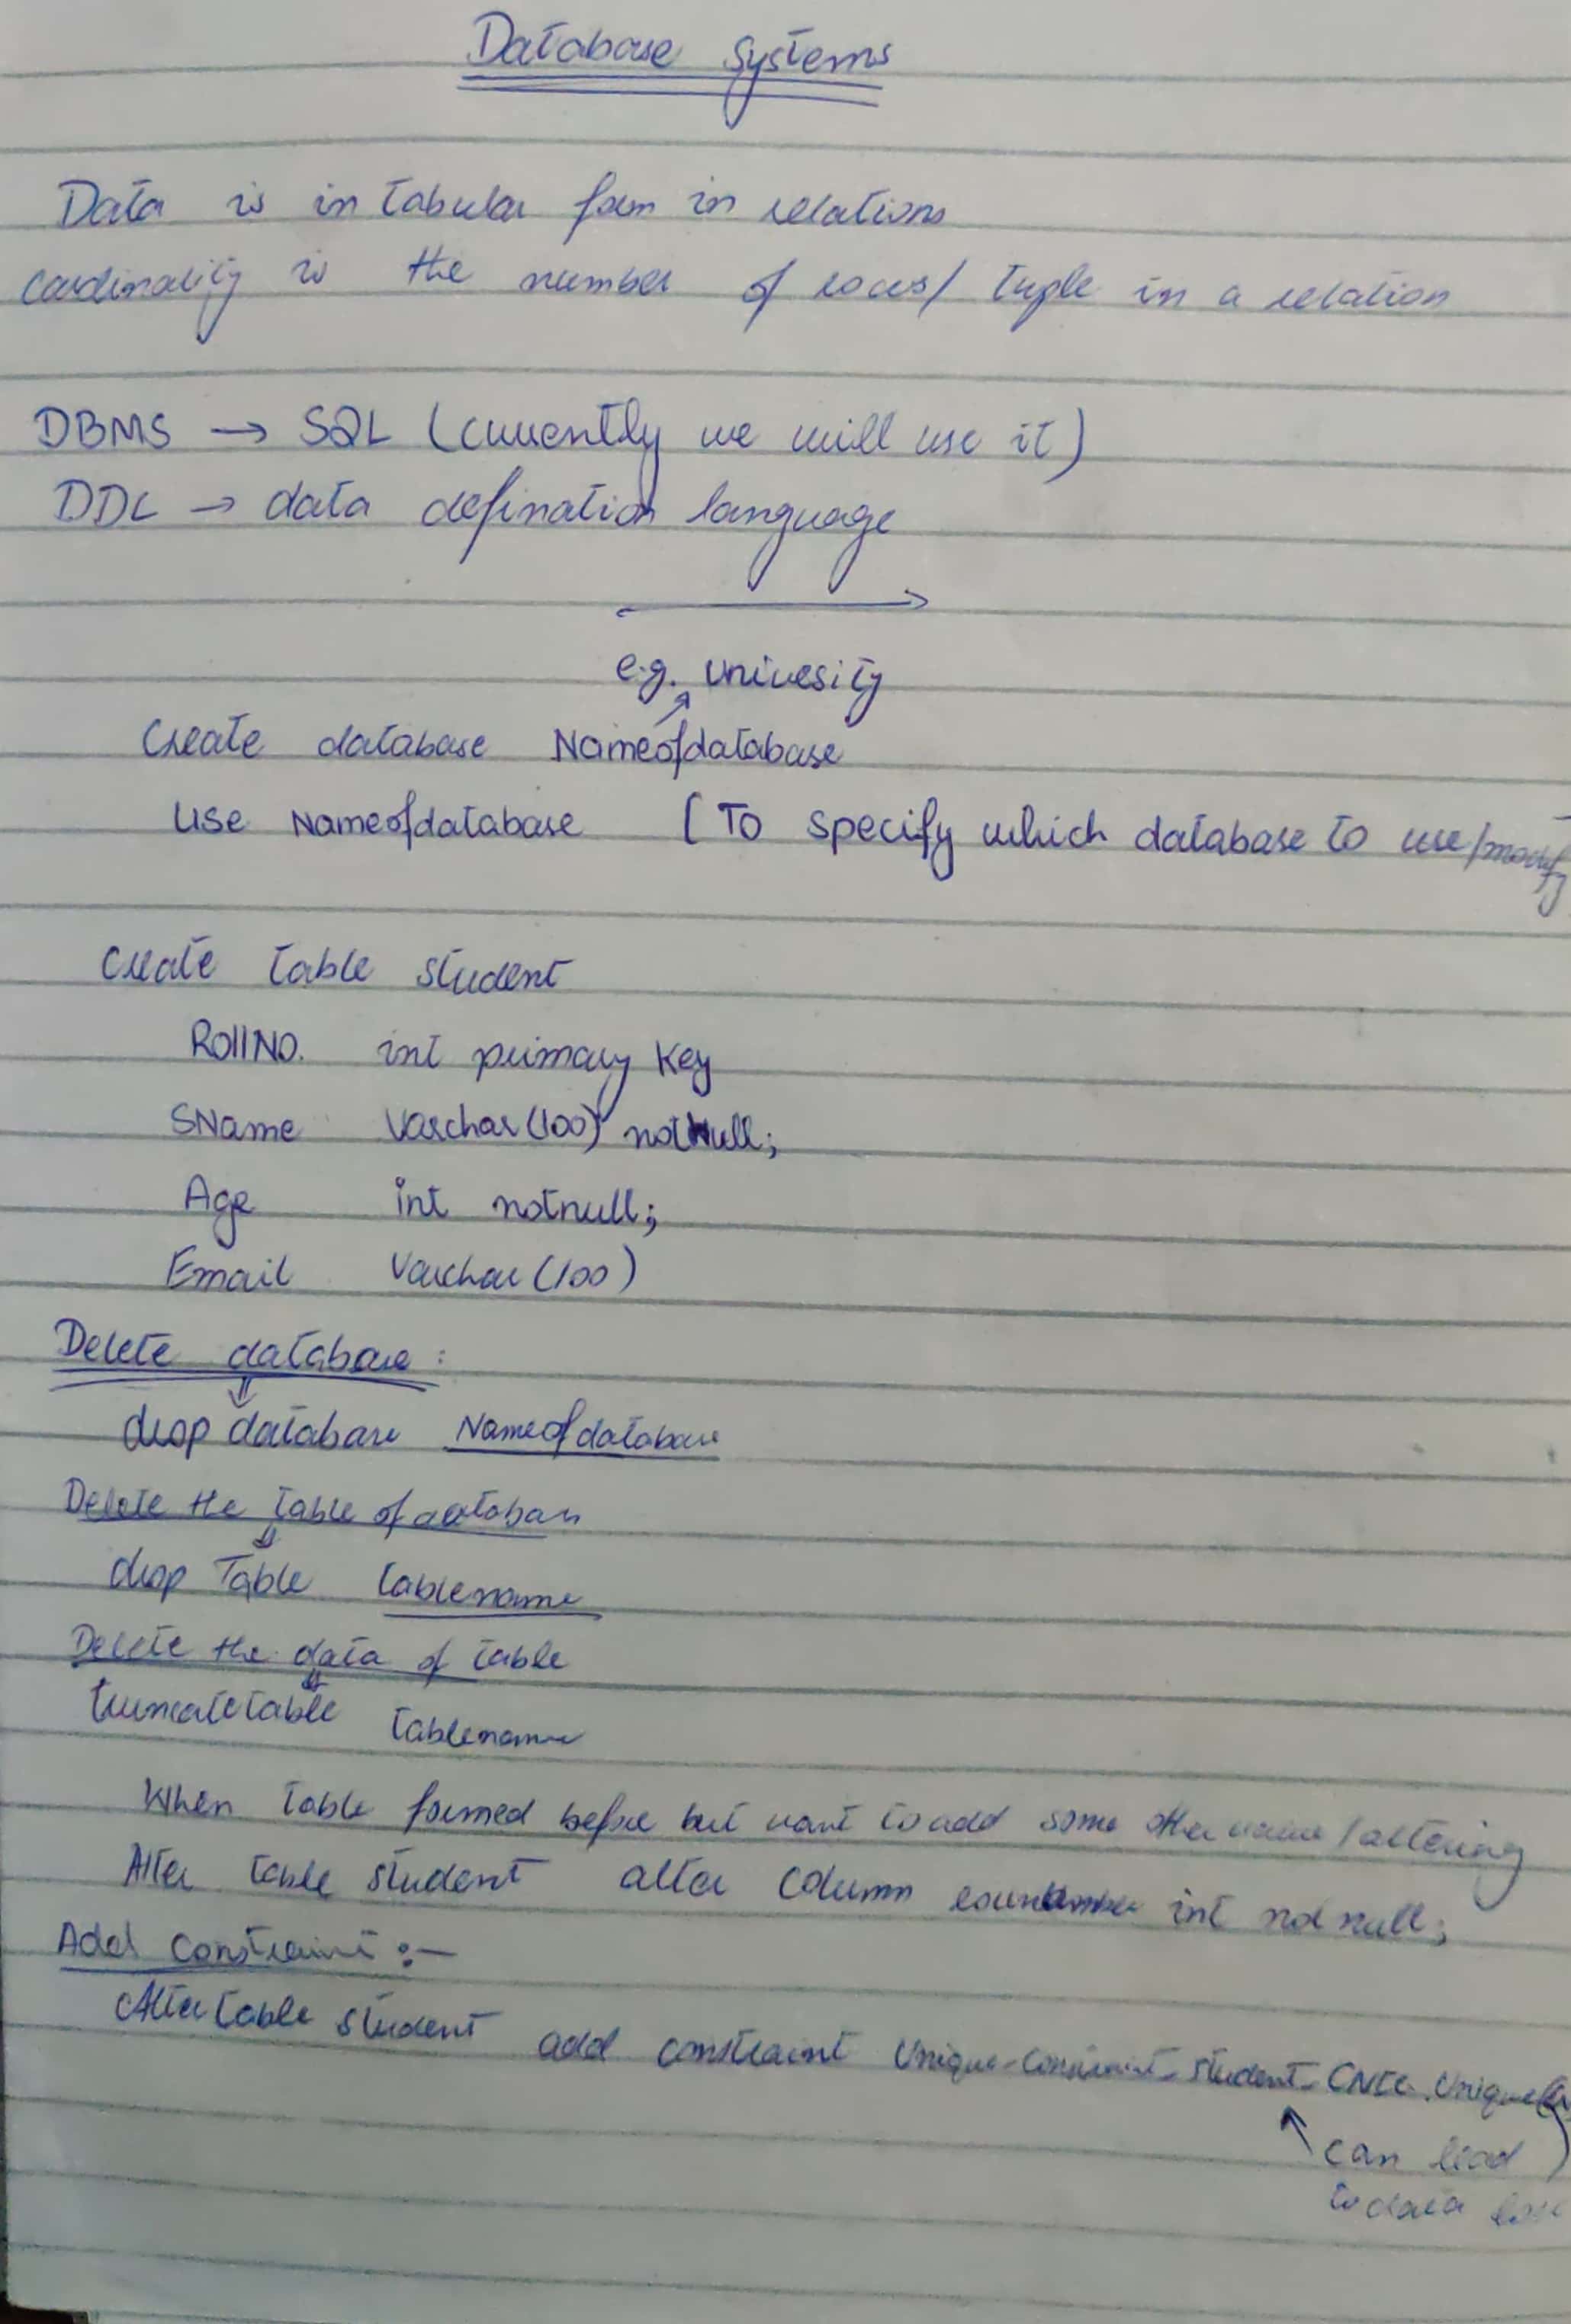 Database Systems
Data is in tabular form in relations
Cardinality is the number of rows/ tuple in a relation
DBMS → SQL (currently we will use it)
DDL → data defination language
e.g. univesity
Create database Nameofdatabase
Use Nameofdatabase [To specify which database to use/modify
Create table student
RollNO. int primary key
SName Varchar(100) notnull;
Age int notnull;
Email Varchar(100)
Delete database:
drop database Nameofdatabase
Delete the table of database
drop Table tablename
Delete the data of table
truncatetable tablename
When table formed before but want to add some other /altering
Alter table student alter column int not null;
Add constraint :-
Alter table student add constraint Unique-Constraint-Student-CNIC Unique(
can lead )
to data loss